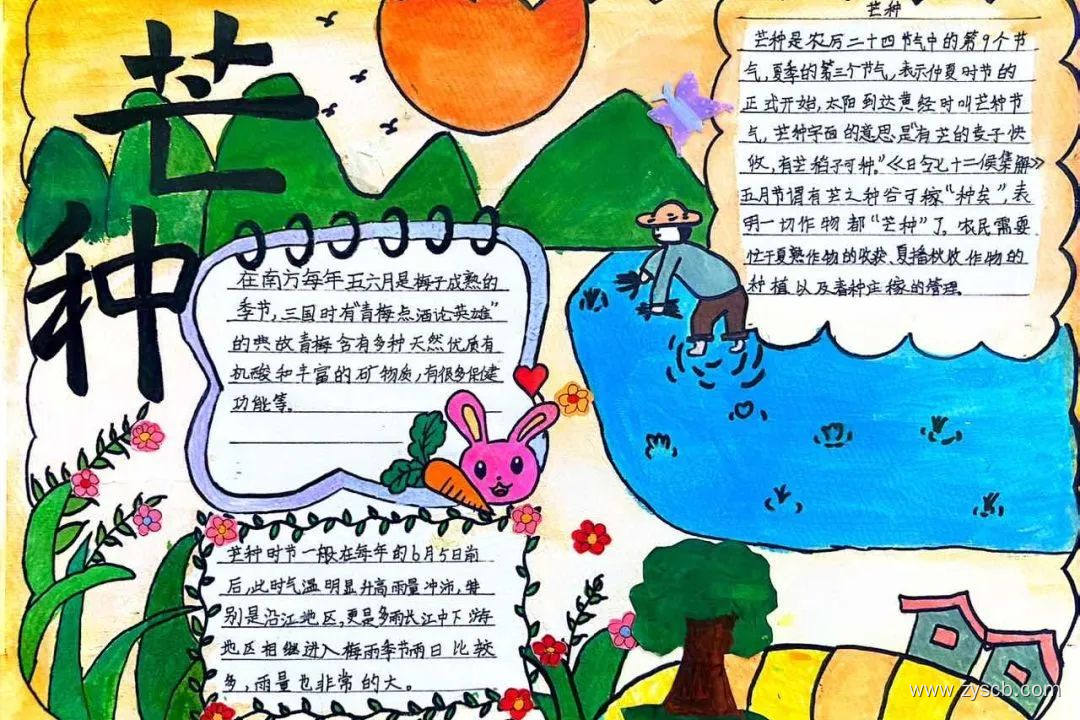 芒种
芒种
芒种是农历二十四节气中的第9个节
气,夏季的第三个节气,表示仲夏时节的
正式开始,太阳到达黄经 时叫芒种节
气,芒种字面的意思是"有芒的麦子快
收,有芒稻子可种。"《 七十二候集解》
五月节谓有芒之种谷可稼"种矣",表
明一切作物都"芒种"了。农民需要
忙于夏熟作物的收获、夏播秋收作物的
种植以及春种庄稼的管理。
在南方每年五六月是梅子成熟的
季节,三国时有"青梅点酒论英雄"
的典故青梅含有多种天然优质有
机酸和丰富的矿物质,有很多保健
功能等。
芒种时节一般在每年的6月5日前
后,此时气温明显升高雨量冲沛,特
别是沿江地区,更是多雨长江中下游
地区相继进入梅雨季节雨日比较
多,雨量也非常的大。
www.zyscb.com